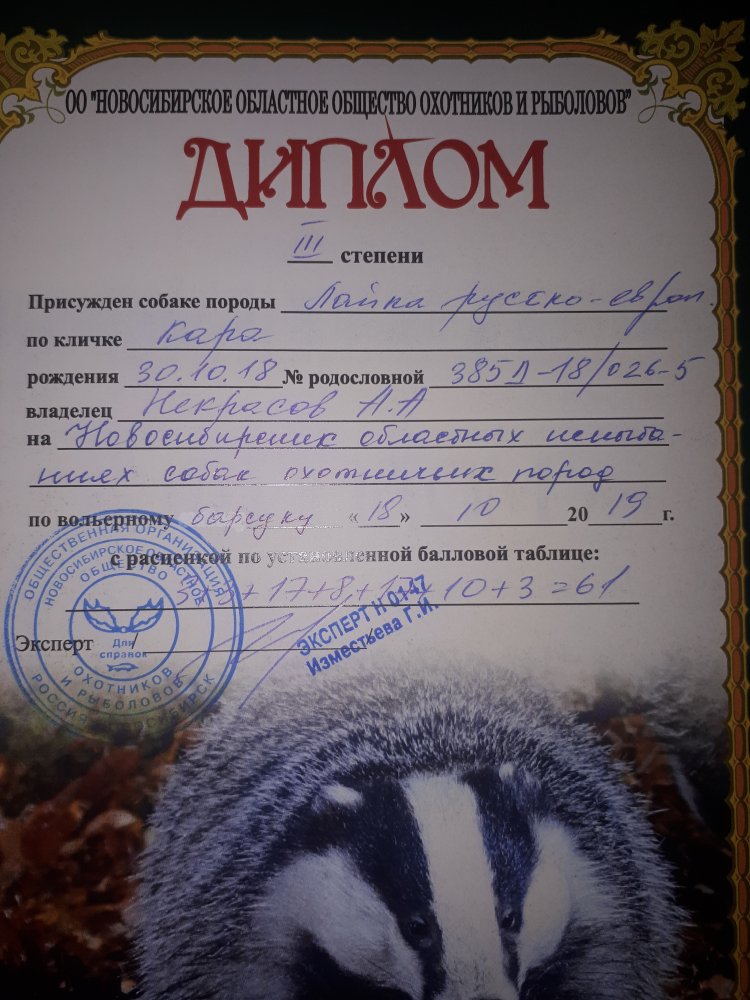 ОО "НОВОСИБИРСКОЕ ОБЛАСТНОЕ ОБЩЕСТВО ОХОТНИКОВ И РЫБОЛОВОВ"
ДИПЛОМ
III степени
Присужден собаке породы Лайка русско-европ.
по кличке Кара
рождения 30.10.18 № родословной 385Д-18/026-5
владелец Некрасов А.А
на Новосибирских областных испыта-
ниях собак охотничьих пород
по вольерному барсуку «18» 10 2019 г.
с расценкой по установленной балловой таблице:
3+3+17+8+17+10+3=61
Эксперт
ЭКСПЕРТ Н 0147
Изместьева Г.И.
ОБЩЕСТВЕННАЯ ОРГАНИЗАЦИЯ
НОВОСИБИРСКОЕ ОБЛАСТНОЕ
ОБЩЕСТВО
Для
справок
ОХОТНИКОВ
И РЫБОЛОВОВ
РОССИЯ НОВОСИБИРСК